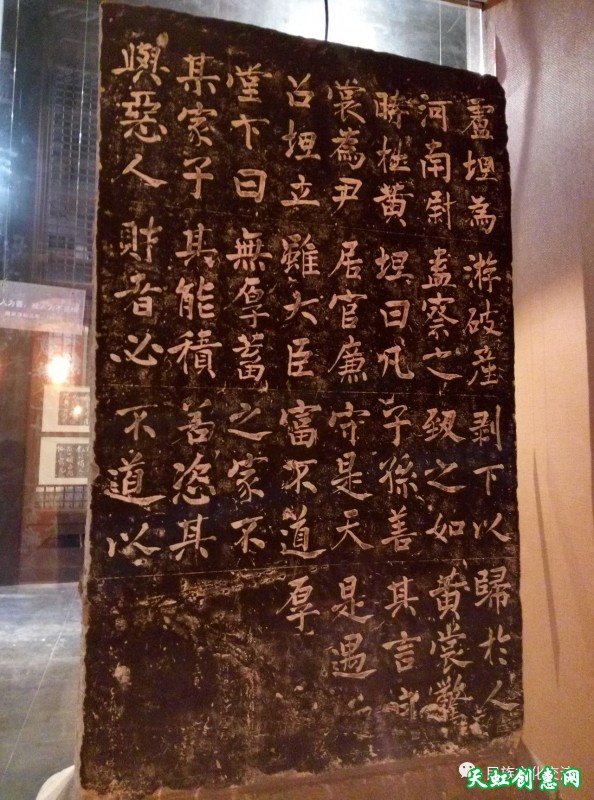 盧坦為
河南尉
時杜黄
裳為尹
召坦立
堂下曰
某家子
與惡人
游破產
盍察之
坦曰凡
居官廉
雖大臣
無厚蓄
其能積
財者必
剥下以
致之如
子孫善
守是天
富不道
之家不
若恣其
不道以
歸於人
黄裳驚
其言自
是遇
厚
民族文化交流
天虹创意网